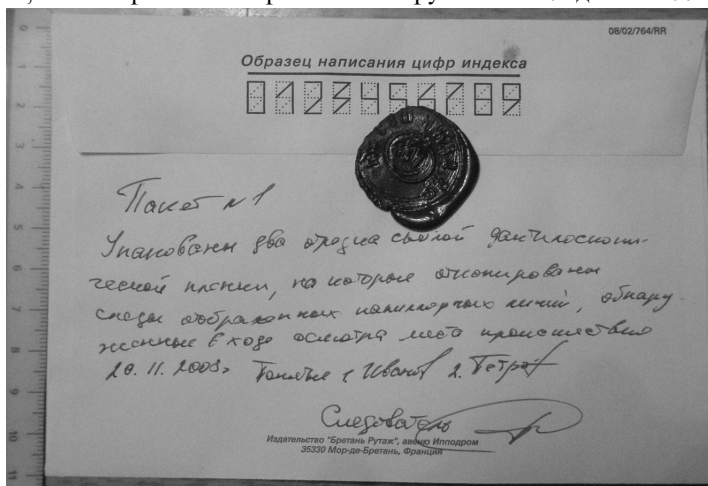 08/02/764/RR
Образец написания цифр индекса
0123456789
Пакет № 1
Упакованы два отрезка светлой дактилоскопи-
ческой пленки, на которые откопированы
следы отображенных папиллярных линий, обнару-
женные в ходе осмотра места происшествия
20.11.2003г Понятые 1. Иванов 2. Петров
Следователь
Издательство "Бретань Рутаж", авенюИпподром
35330 Мор-де-Бретань, Франция